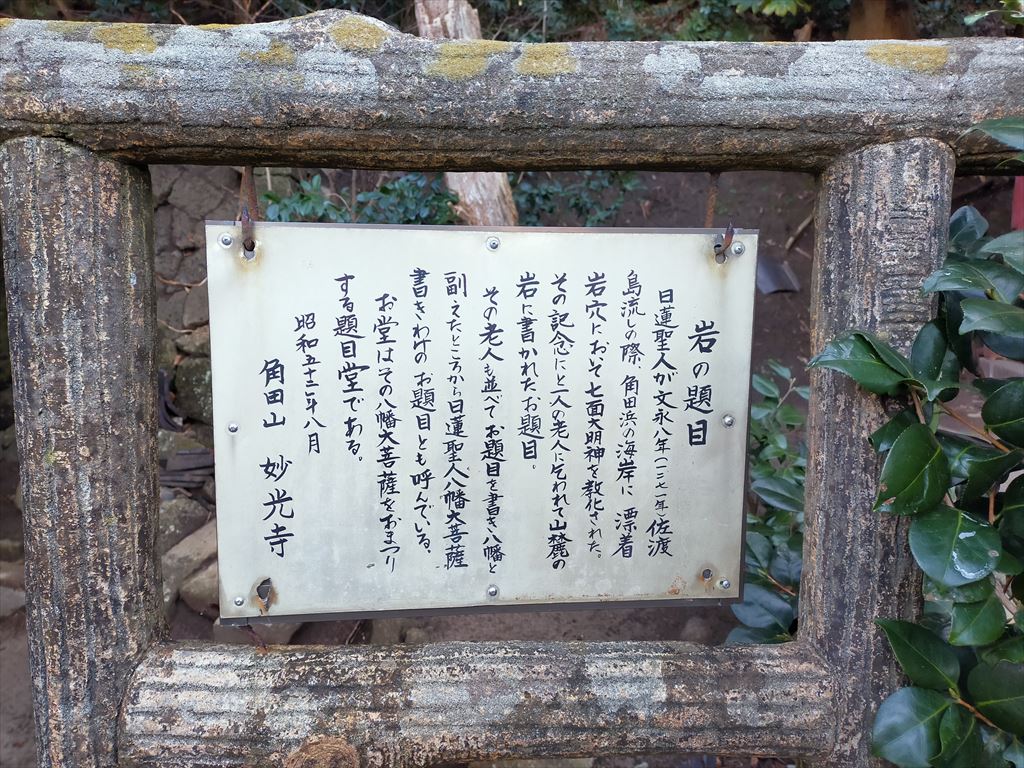 岩の題目
日蓮聖人が文永八年(一二七一年)佐渡
島流しの際、角田浜の海岸に 漂着
岩穴において七面大明神を教化された。
その記念にと二人の老人に乞われて山麓の
岩に書かれたお題目。
その老人も並べてお題目を書き八幡と
副えたところから日蓮聖人八幡大菩薩
書きわけのお題目とも呼んでいる。
お堂はその八幡大菩薩をおまつり
する題目堂である。
昭和五十二年八月
角田山 妙光寺